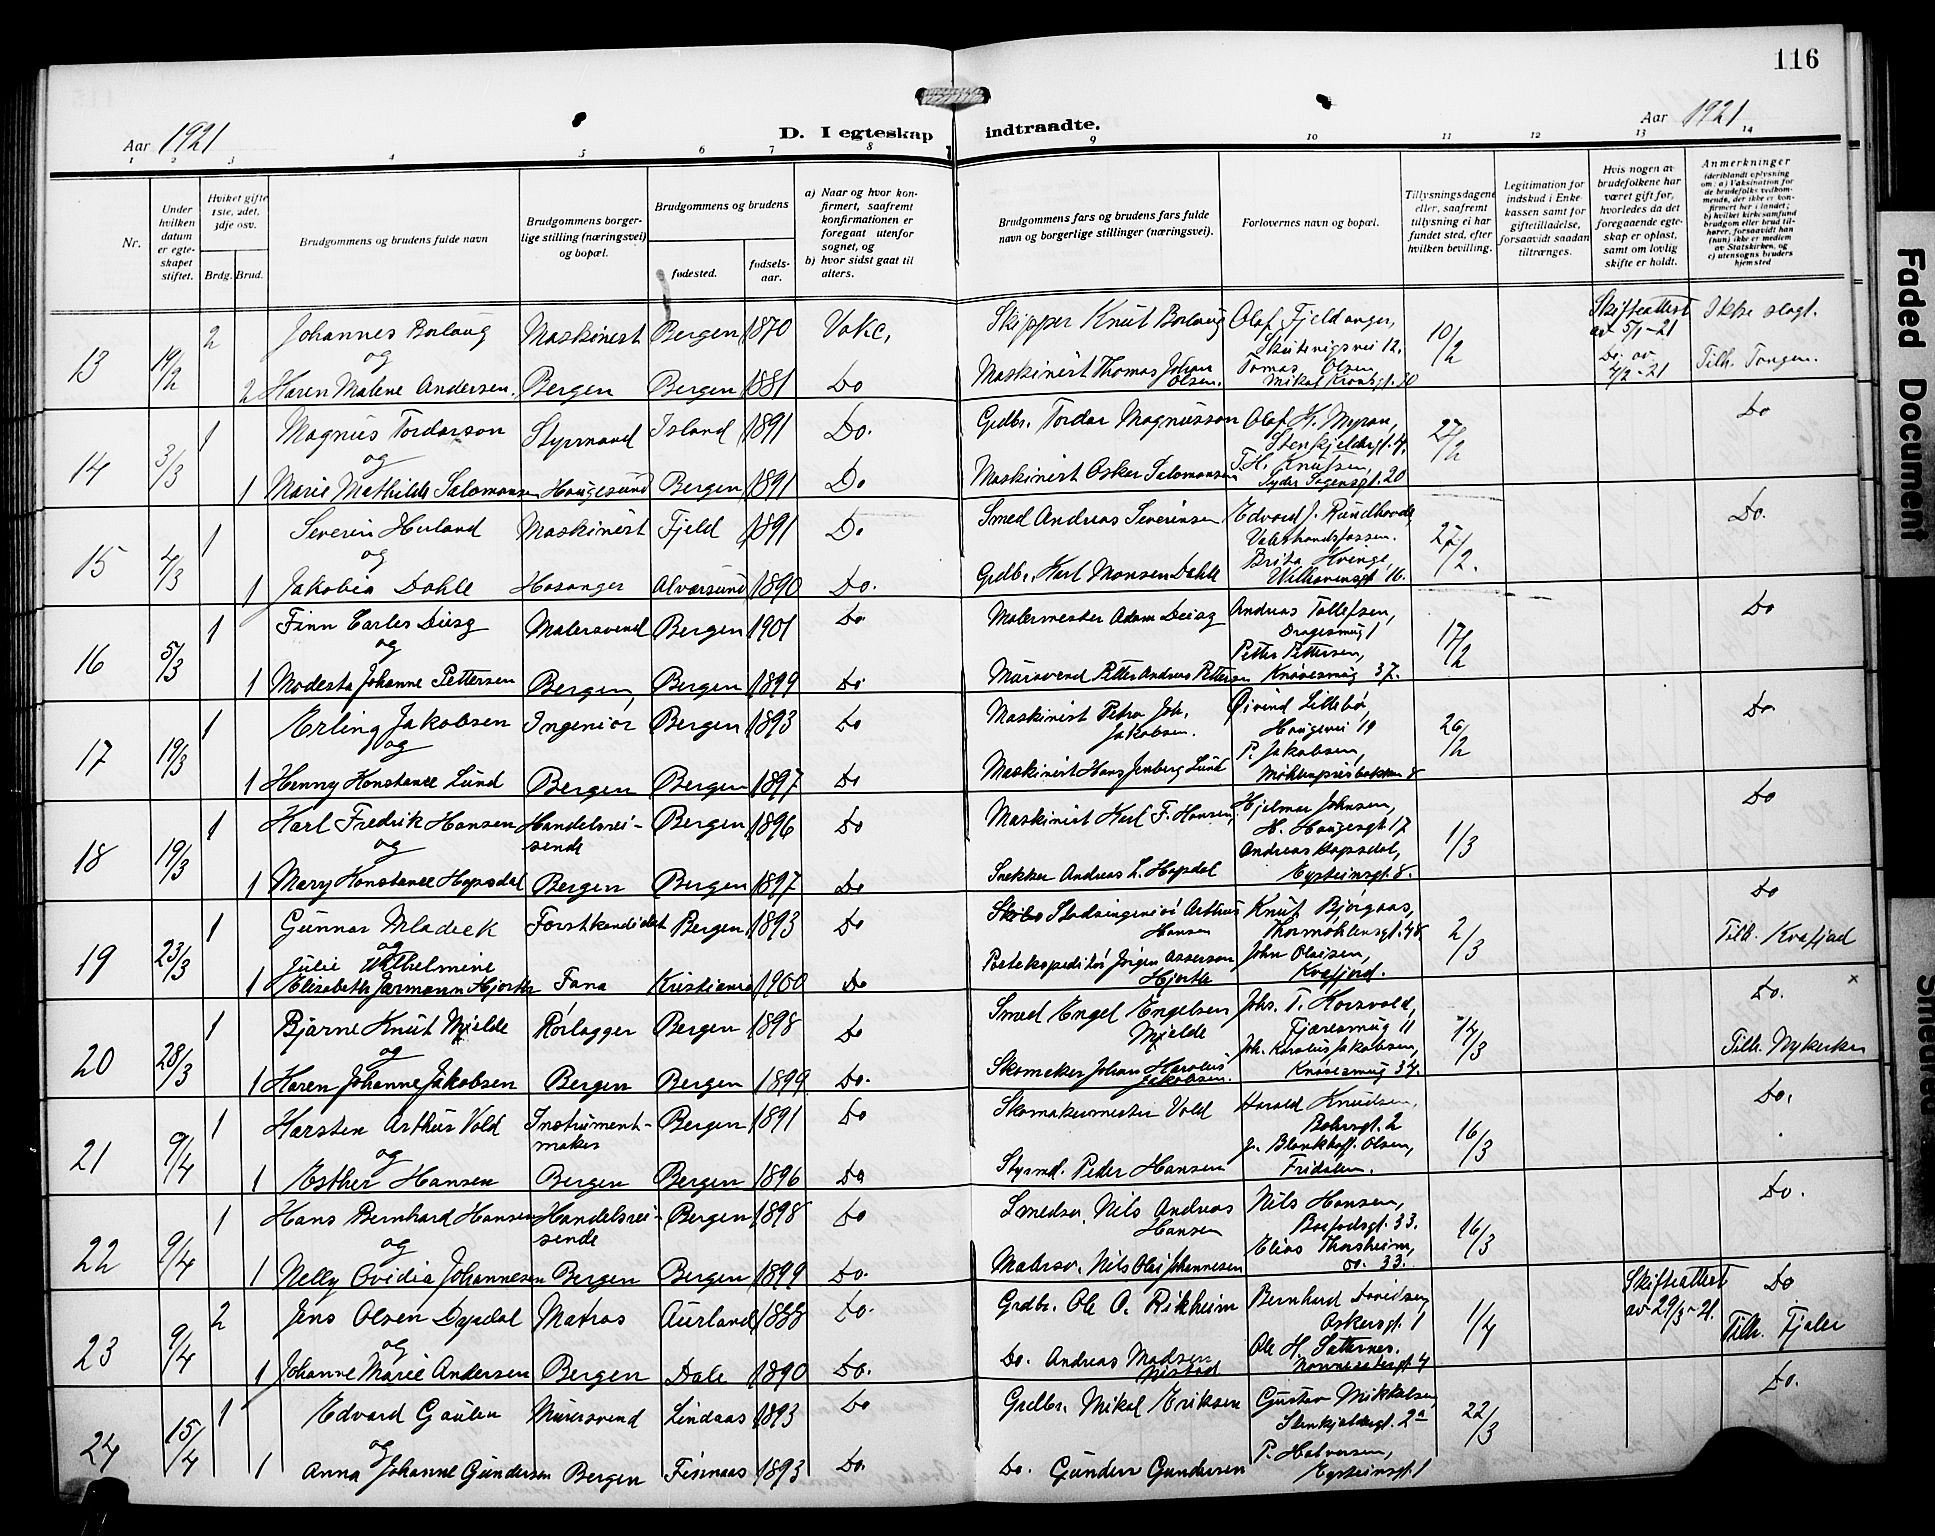 116
Aar 1921
D. I egteskap indtraadte.
Aar 1921
1 2 3 4 5 6 7 8 9 10 11 12 13 14
Nr.
Under hvilken datum er egteskapet stiftet.
Hvilket gifte 1ste, 2det, 3dje osv.
Brdg. Brud.
Brudgommens og brudens fulde navn
Brudgommens borgerlige stilling (næringsvei) og bopæl.
Brudgommens og brudens
fødested.
fødselsaar.
a) Naar og hvor konfirmert, saafremt konfirmationen er foregaat utenfor sognet, og
b) hvor sidst gaat til alters.
Brudgommens fars og brudens fars fulde navn og borgerlige stillinger (næringsvei).
Forlovernes navn og bopæl.
Tillysningsdagene eller, saafremt tillysning ei har fundet sted, efter hvilken bevilling.
Legitimation for indskud i Enkekassen samt for giftetilladelse, forsaavidt saadan tiltrænges.
Hvis nogen av brudefolkene har været gift før, hvorledes da det foregaaende egteskap er opløst, samt om lovlig skifte er holdt.
Anmerkninger (deriblandt oplysning om: a) Vaksination for de brudefolks vedkommende, der ikke er konfirmert her i landet; b) hvilket kirkesamfund brudgom eller brud tilhører, forsaavidt han (hun) ikke er medlem av Statskirken, og c) utensogns bruders hjemsted
13 14/2 2 Johannes Borlaug Maskinist Bergen 1870 Vakc. Skipper Knut Borlaug Olaf Fjeldanger, Skutevigsvei 12. 10/2 Skifteattest av 5/1-21 Ikke slegt.
og
2 Karen Malene Andersen. Bergen Bergen 1881 Do Maskinist Thomas Johan Olsen. Tomas Olsen Mikal Krohnsgt. 20 Do. av 4/2-21 Tilh. Tongen.
14 3/3 1 Magnus Tordarson Styrmand Island 1891 Do. Grdbr. Tordar Magnusson Olaf K. Myran, Stenkjeldersgt. 4. 22/2 Do
og
1 Marie Mathilde Salomonsen Haugesund Bergen 1891 Do Maskinist Oskar Salomonsen T.H. Knutsen, Lyder Sagensgt. 20
15 4/3 1 Severin Herland Maskinist Fjeld 1891 Do Smed Andreas Severinsen Edvard J. Rundhovde 22/2. Do.
og
1 Jakobia Dahle Hosanger Alversund 1890 Do. Grdbr. Karl Monsen Dahle
16 5/3 1 Finn Carler Deisg Malersvend Bergen 1901 Do Malermester Adam Deisg Andreas Tollefsen, Dragesmug 1 17/2 Do
og
1 Modesta Johanne Pettersen Bergen, Bergen 1899 Do Mursvend Petter Andreas Pettersen Petter Pettersen, Knøsesmug 37.
17 19/3 1 Erling Jakobsen Ingeniør Bergen 1893 Do Maskinist Petra Joh. Jakobsen. Øivind Lillebø, Haugevei 19 26/2 Do
og
1 Henny Konstance Lund Bergen Bergen 1897 Do Maskinist Hans Jenberg Lund P. Jakobsen, Møhlenprisbakken 8
18 19/3 1 Karl Fredrik Hansen Handelsrei-sende Bergen 1896 Do Maskinist Karl F. Hansen, Hjelmar Johnsen, H. Haugesgt. 17 1/3 Do
og
1 Mary Konstance Hopsdal Bergen Bergen 1897 Do Snekker Andreas L. Hopsdal Andreas Hopsdal, Eysteinsgt. 8.
19 23/3 1 Gunnar Mladeck Forstkandidat Bergen 1893 Do Stadsingeniør Arthur Hansen Knut Bjørgaas, Thormøhlensgt. 48 2/3 Do
og
1 Julie Wilhelmine Elisabeth Jærmann Hjorth Fana Kristiania 1900 Do Postekspeditør Jørgen Asserson Hjorth John Olaisen, Kvafjord. Tilh. Kvafjod
20 28/3 1 Bjarne Knut Mjelde Rørlægger Bergen 1898 Do Smed Engel Engelsen Mjelde Johs. T. Korsvold, Tjæresmug 11 14/3 Do.
og
1 Karen Johanne Jakobsen Bergen Bergen 1899 Do. Skomaker Johan Karolus Jakobsen. Joh. Karolus Jakobsen, Knøsesmug 34. Tilh. Nykirken
21 9/4 1 Karsten Arthur Vold Instrument-maker Bergen 1891 Do Skomakermester Vold Harald Knudsen, Bøhrsgt. 2 16/3 Do.
og
1 Esther Hansen Bergen Bergen 1896 Do Styrmd. Peder Hansen J. Blankhoff. Olsen, Fridalen.
22 9/4 1 Hans Bernhard Hansen Handelsrei-sende Bergen 1898 Do Smedsv. Nils Andreas Hansen Nils Hansen, 33. 16/3 Do.
og
1 Nelly Ovidia Johannesen Bergen Bergen 1899 Do. Malersv. Nils Olai Johannesen Elias Thorsheim, do. 33.
23 9/4 2 Jens Olsen Dypdal Matros Aurland 1888 Do. Grdbr. Ole O. Rikheim Bernhard Davidsen Oskersgt. 1 1/4 Skifteattest av 29/3-21. Do
og
1 Johanne Marie Andersen Bergen Dale 1890 Do. Do. Andreas Madsen Nistad Ole H. Sætternes. Nonnesetergt. 4 Tilh. Fjaler
24 15/4 1 Edvard Gaulen Murersvend Lindaas 1893 Do Grdbr. Mikal Eriksen Gustav Mikkelsen, Stenkjeldersgt. 2a 22/3 Do.
og
1 Anna Johanne Gundersen Bergen Finnaas 1893 Do. Do. Gunders Gundersen P. Halversen, Eysteinsgt. 1
Faded Document